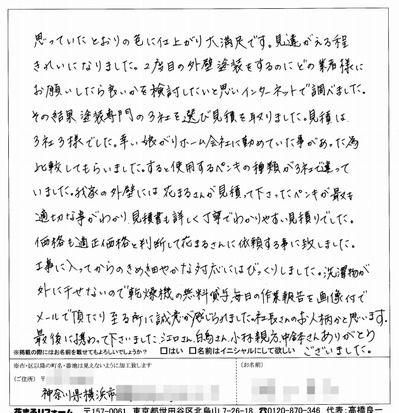 思っていたとおりの色に仕上がり大満足です。見違がえる程
きれいになりました。2度目の外壁塗装をするのにどの業者様に
お願いしたら良いかを検討したいと思いインターネットで調べました。
その結果塗装専門の3社を選び見積を取りました。見積は
3社3様でした。幸い娘がリホーム会社に勤めていた事があった為
比較してもらいました。すると使用するペンキの種類が3社で違って
いました。我家の外壁には花まるさんが見積って下さったペンキが最も
適切な事がわかり見積書も詳しく丁寧でわかりやすい見積りでした。
価格も適正価格と判断して花まるさんに依頼する事に致しました。
工事に入ってからのきめ細やかな対応にはびっくりしました。洗濯物が
外に干せないので乾燥機の無料貸与、毎日の作業報告を画像付で
メールで頂たり至る所に誠意が感じられました。社長さんのお人柄かと思います。
最後に携わって下さいました、江口さん、白鳥さん、小林親方、中舘さんありがとう
ございました。
※掲載の際にはお名前を載せてもよろしいでしょうか? □はい □名前はイニシャルにして欲しい
※市・区以降の町名・番地は見えないように加工致します
(ご住所) 〒
(お名前)
神奈川県横浜市
花まるリフォーム 〒157-0061 東京都世田谷区北烏山7-26-18 0120-870-346 代表:高橋良一